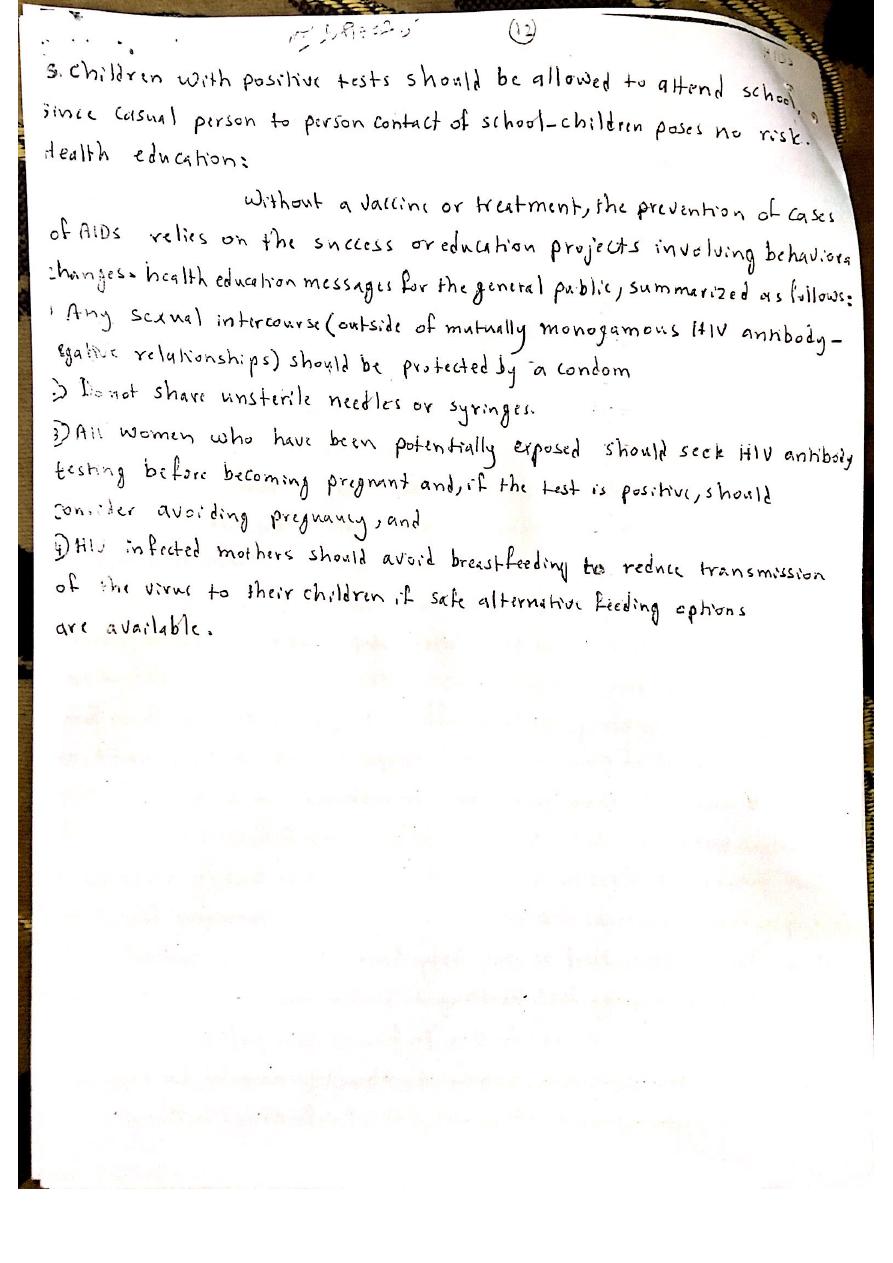 (12)
AIDS
5. Children with positive tests should be allowed to attend school,
since casual person to person contact of school-children poses no risk.
Health education:
Without a vaccine or treatment, the prevention of cases
of AIDS relies on the success or education projects involving behaviora
changes. health education messages for the general public, summarized as follows:
1 Any sexual intercourse (outside of mutually monogamous HIV antibody-
egative relationships) should be protected by a condom
2) Do not share unsterile needles or syringes.
3) All women who have been potentially exposed should seek HIV antibody
testing before becoming pregnant and, if the test is positive, should
consider avoiding pregnancy, and
4) HIV infected mothers should avoid breastfeeding to reduce transmission
of the virus to their children if safe alternative feeding options
are available.